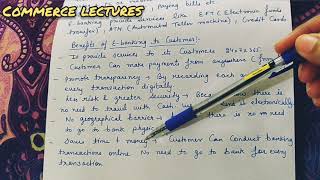 COMMERCE LECTURES
paying bills etc
E-banking provide services like EFT (Electronic funds
transfer), ATM (Automated Teller Machine), Credit Cards
Benefits of E-banking to Customer:-
It provide service to its Customers 24x7x365
Customer Can make payments from anywhere
Promote Transparency - By recording each
every transaction digitally.
Less risk & greater Security - there is no
need to travel with Cash, send electronically
No geographical barrier - there is no need
to go to bank
Saves time & money - Customer Can Conduct banking
transactions online. No need to go to bank for every
transaction